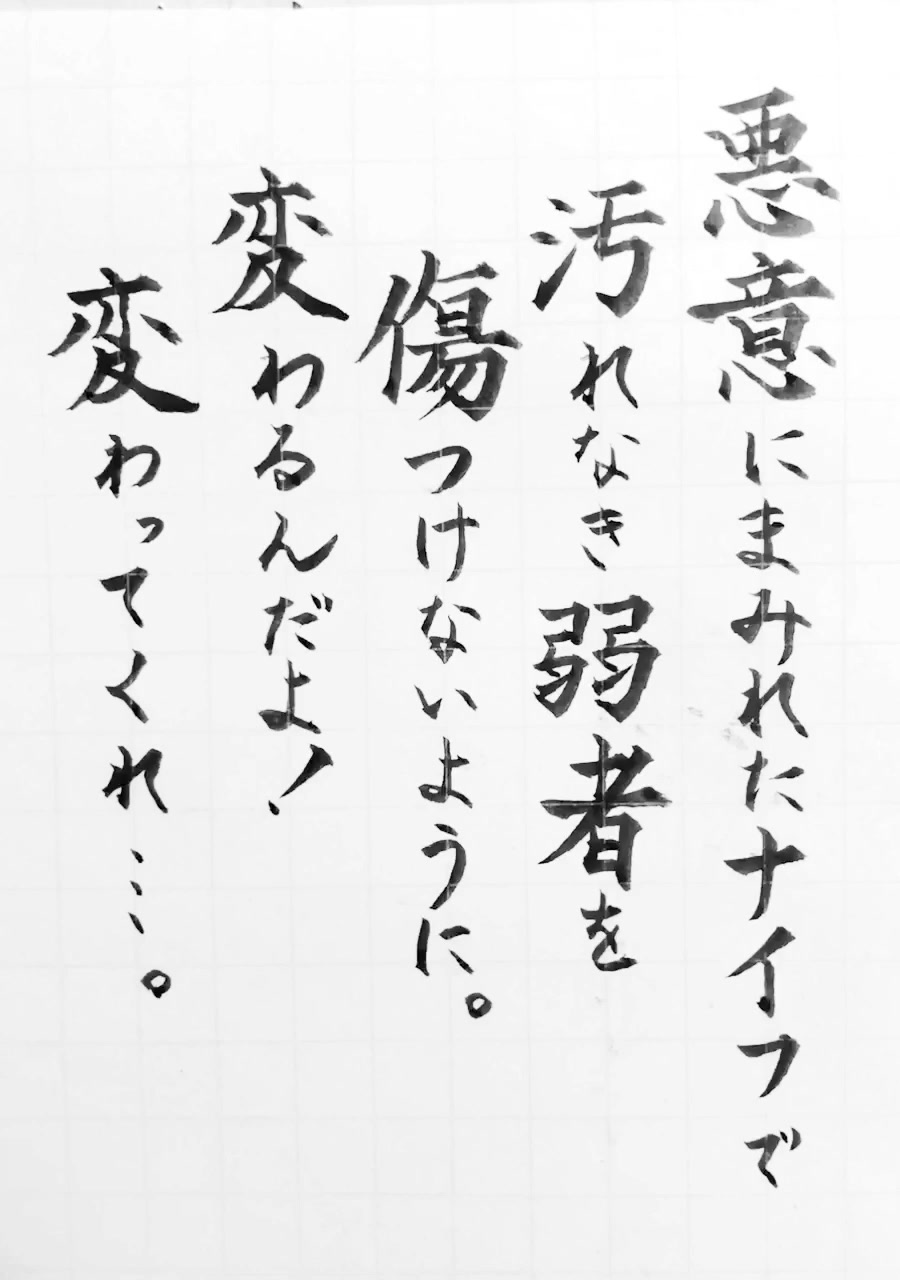 悪意にまみれたナイフで
汚れなき弱者を
傷つけないように。
変わるんだよ！
変わってくれ…。